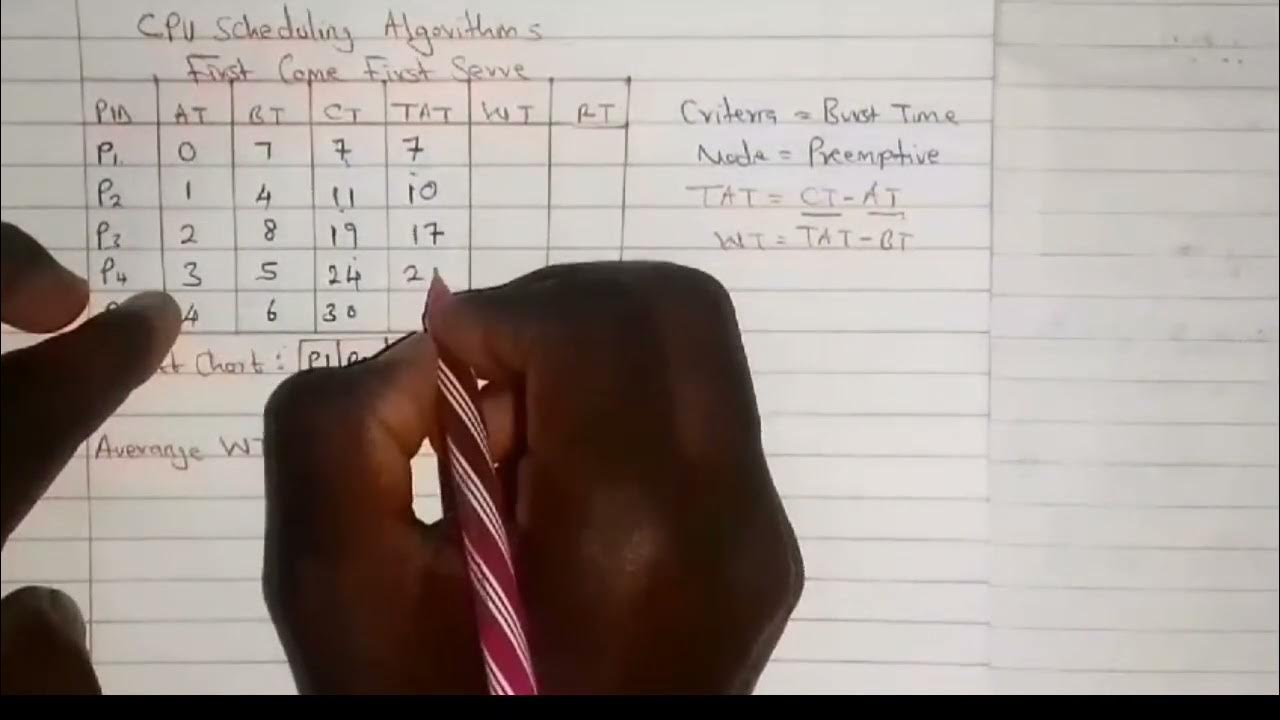 CPU Scheduling Algorithms
First Come First Serve
PID AT BT CT TAT WT RT
P1 0 7 7 7
P2 1 4 11 10
P3 2 8 19 17
P4 3 5 24 2
4 6 30
Chart : P1
Averange WT
Criterra = Burst Time
Mode = Preemptive
TAT = CT - AT
WT = TAT - BT